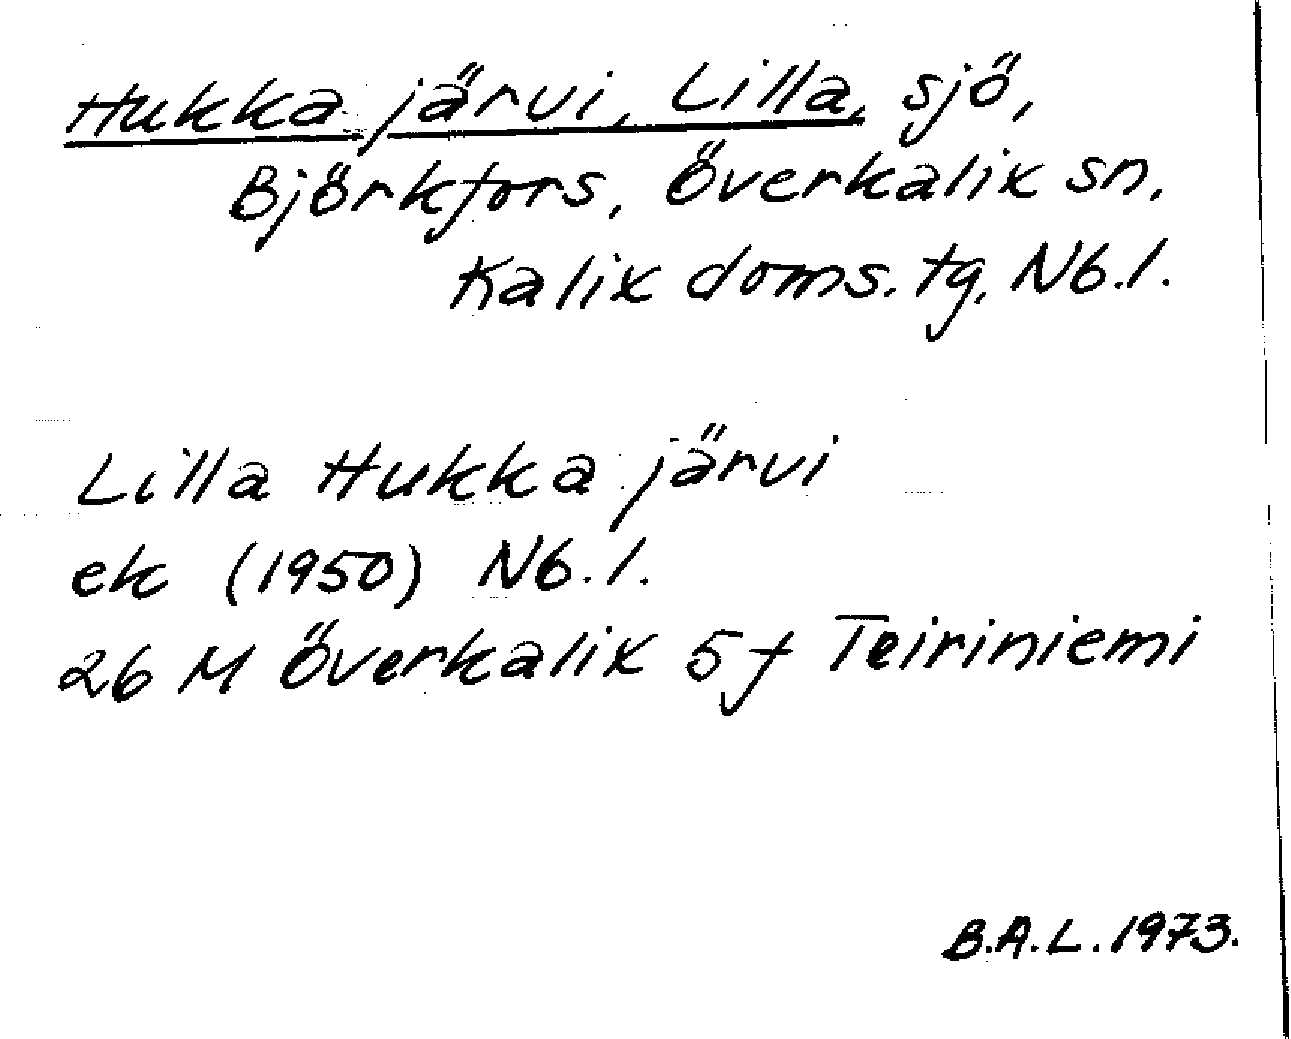 Hukka järvi, Lilla, sjö,
Björkfors, Överkalix sn,
Kalix doms. tg, Nb.l.
Lilla Hukka järvi
ek (1950) Nb.l.
26 M Överkalix 5 f Teiriniemi
B.A.L. 1973.